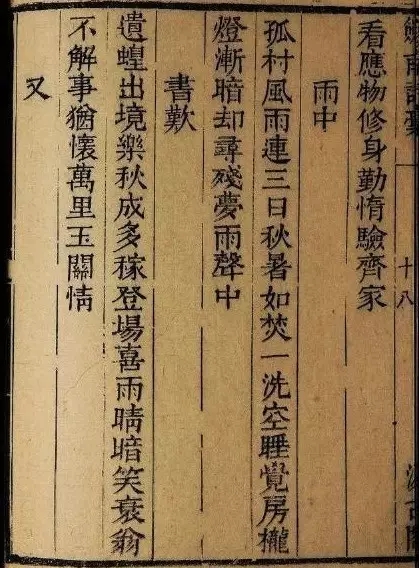 十八
看應物修身勤惰驗齊家
雨中
孤村風雨連三日秋暑如焚一洗空睡覺房櫳
燈漸暗却尋殘夢雨聲中
書歎
遺蝗出境樂秋成多稼登場喜雨晴暗笑衰翁
不解事猶懷萬里玉關情
又